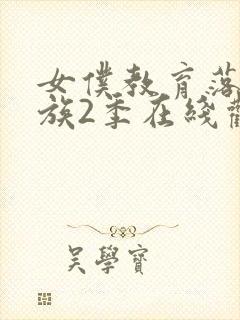 女僕教育落
族2季在綫觀
吳學寶